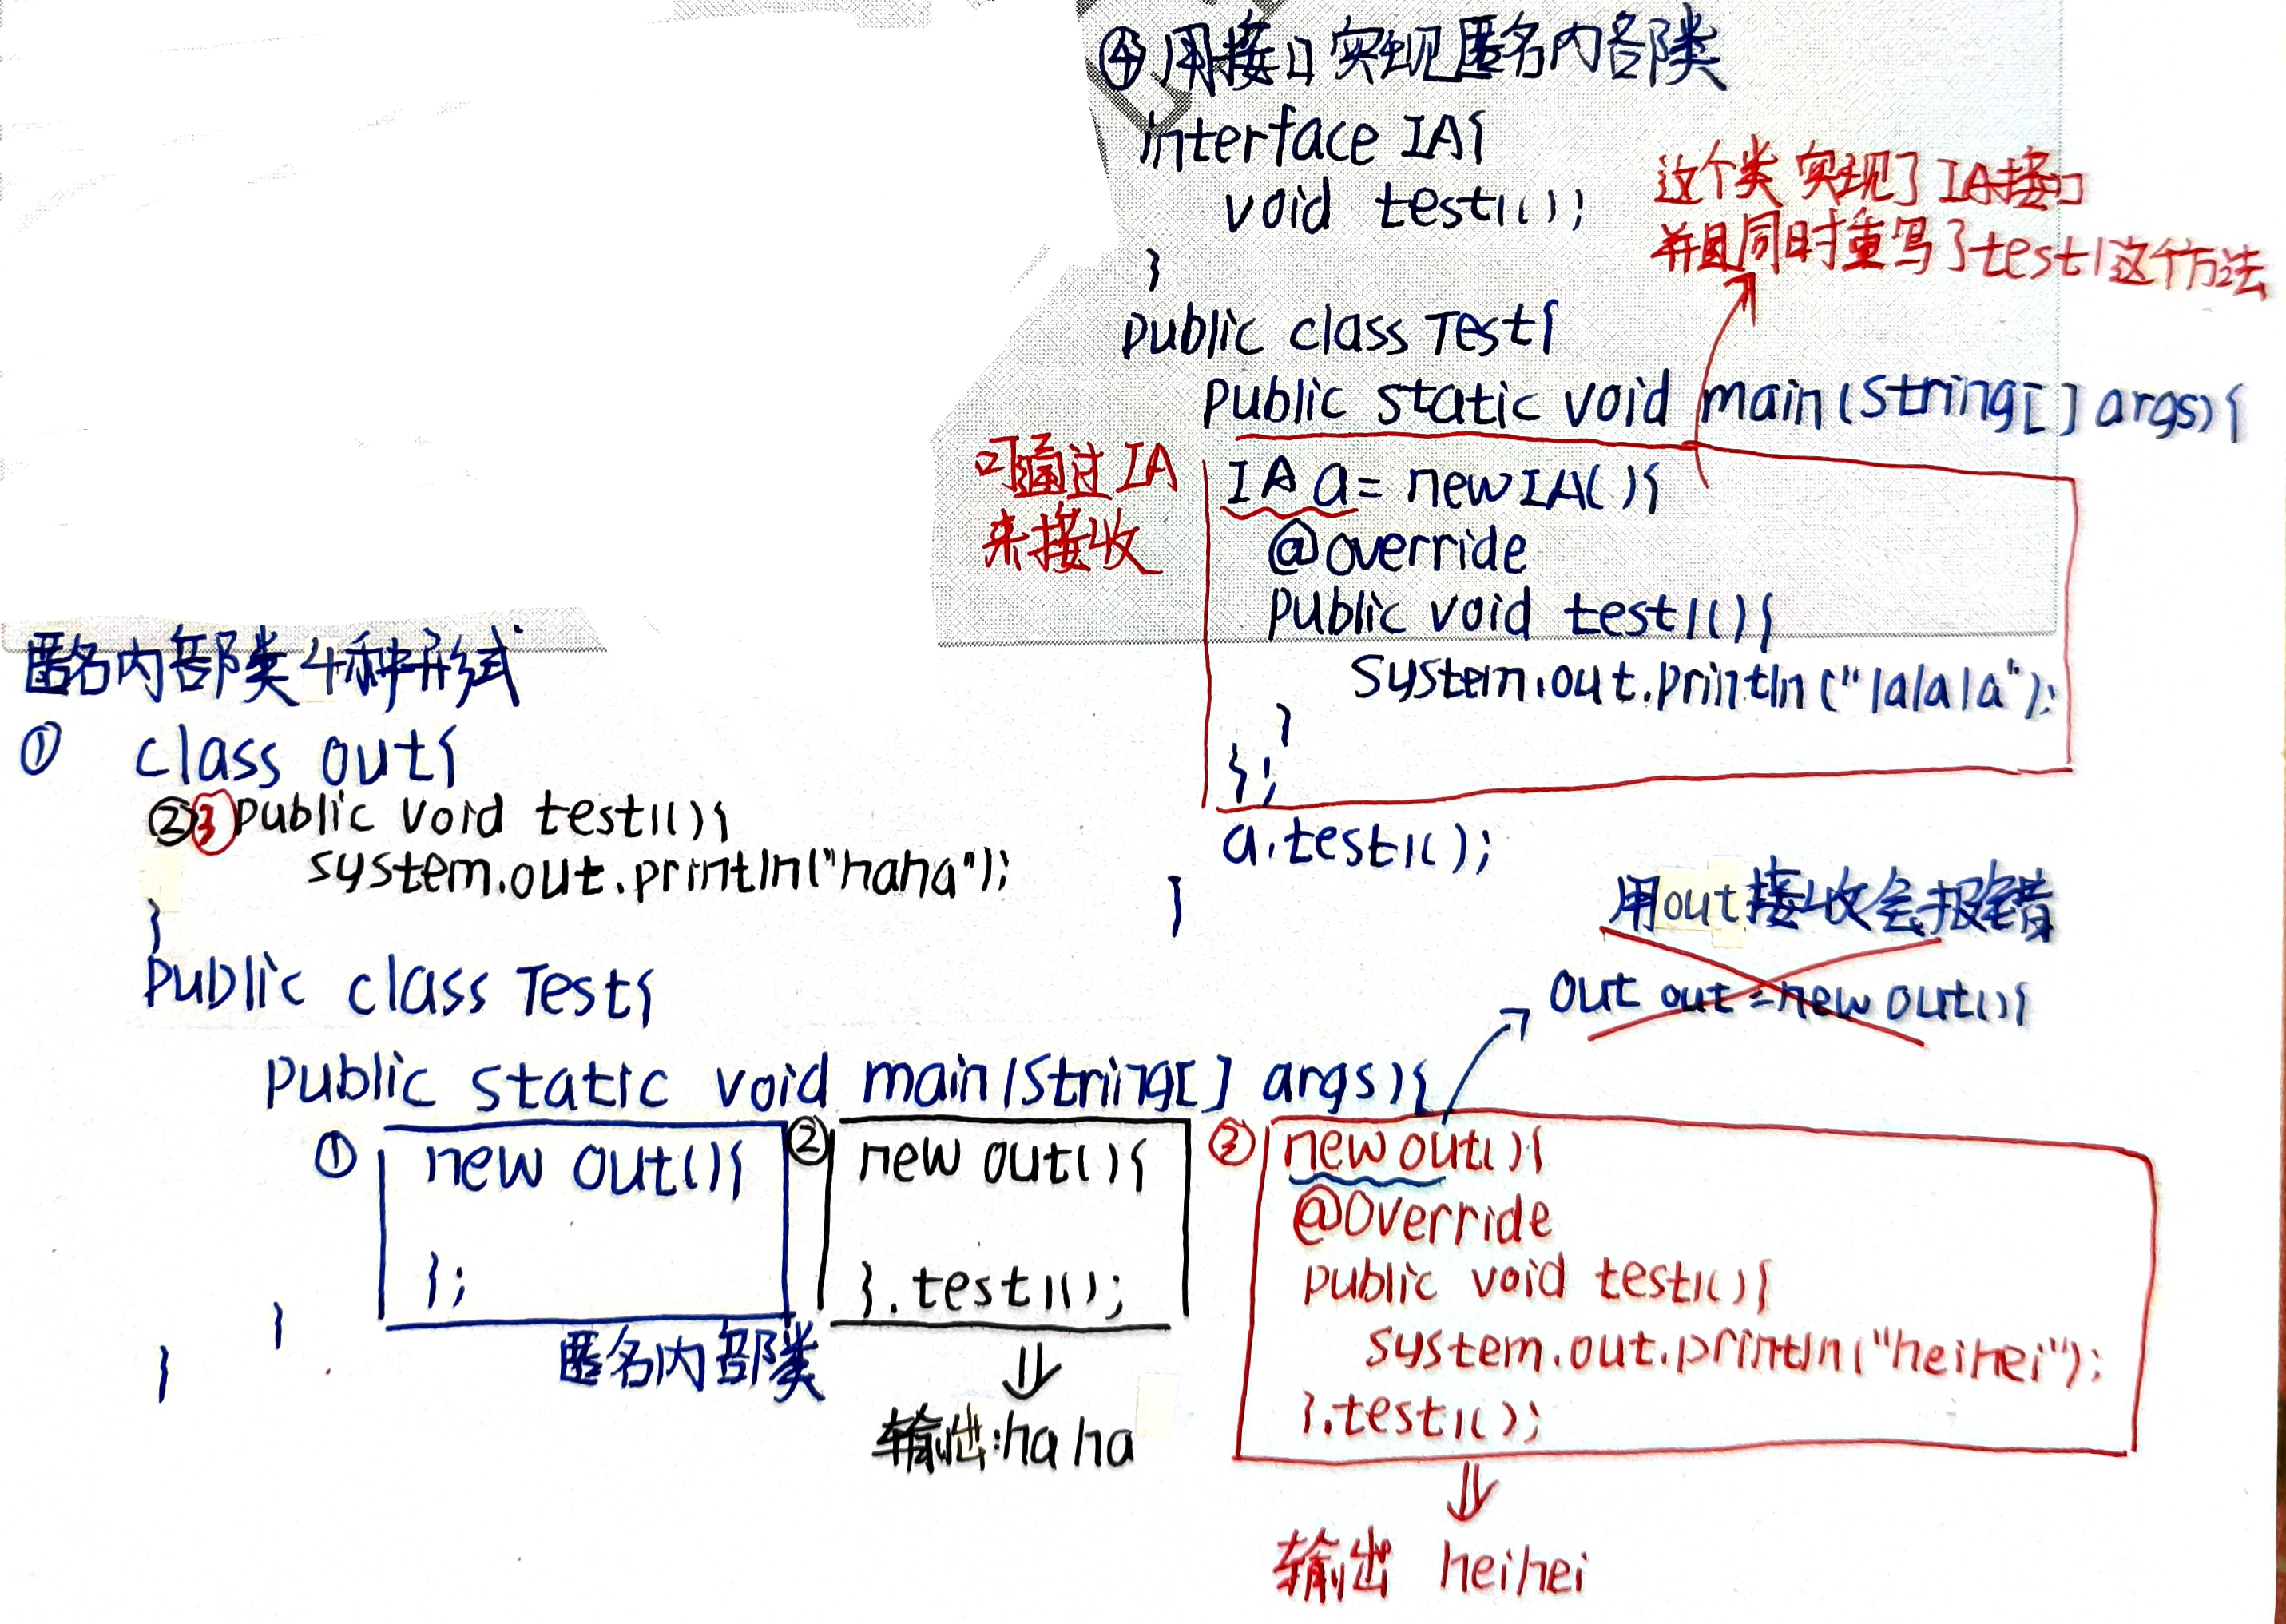 匿名内部类4种形式
① class out{
②③public void test1(){
system.out.println("haha");
}
Public class Test{
public static void main(String[] args){
① new out(){
};
匿名内部类
② new out(){
}.test1();
⇓
输出:haha
③ new out(){
@Override
public void test1(){
system.out.println("heihei");
}.test1();
⇓
输出 heihei
}
}
用out接收会报错
out out=new out(){
④用接口实现匿名内部类
interface IA{
void test1();
}
public class Test{
public static void main(String[] args){
IA a= new IA(){
@override
public void test1(){
system.out.println("lalala");
}
};
a.test1();
}
这个类实现了IA接口
并且同时重写了test1这个方法
可通过IA
来接收